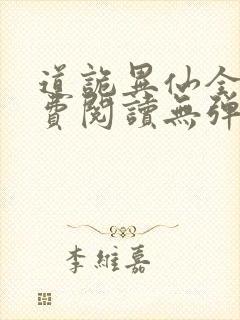 道詭異仙全
費閱讀無彈
李維嘉